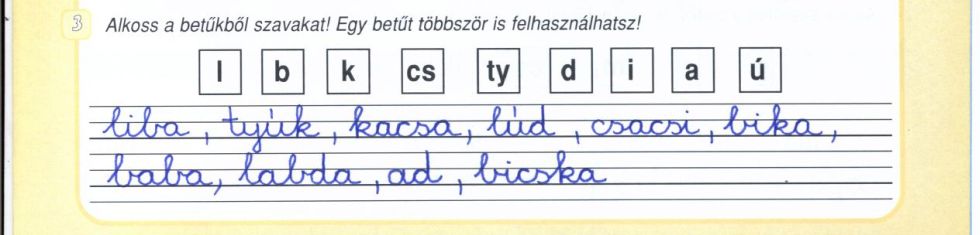 3 Alkoss a betűkből szavakat! Egy betűt többször is felhasználhatsz!
l b k cs ty d i a ú
liba, tyúk, kacsa, lúd, csacsi, bika,
baba, labda, ad, bicska